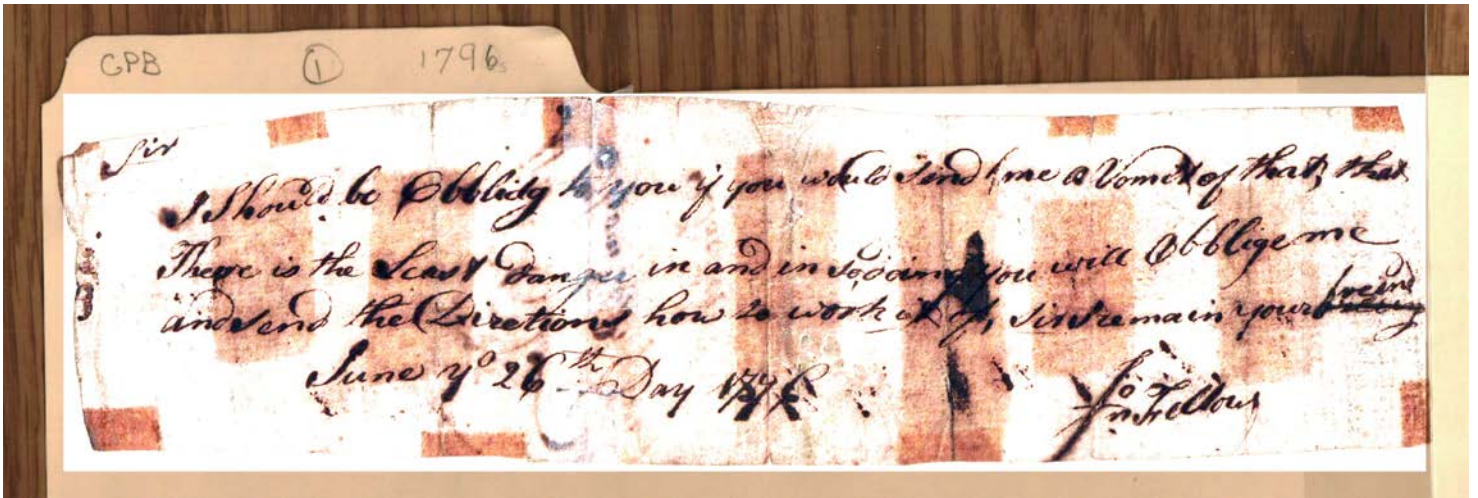 GPB ① 1796s
Sir
I Should be Obblidg to you if you would Send me a Vomit of that, that
There is the Least danger in and in so doing you will Obblige me
and send the Diretions how to work it off, sir I remain your freind
June ye 26th Day
Jon Fellows